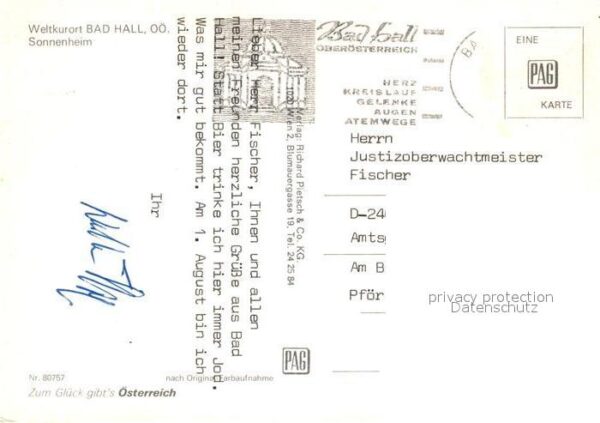 Weltkurort BAD HALL, OÖ.
Sonnenheim
Lieber Herr Fischer, Ihnen und allen
meinen Freunden herzliche Grüße aus Bad
Hall! Statt Bier trinke ich hier immer Jod.
Was mir gut bekommt. Am 1. August bin ich
wieder dort.
Ihr
Nr. 80757
nach Original-Farbaufnahme
Zum Glück gibt's Österreich
Verlag: Richard Pietsch & Co. KG.
1020 Wien 2, Blumauergasse 19, Tel. 24 25 84
PAG
Bad Hall
OBERÖSTERREICH
HERZ
KREISLAUF
GELENKE
AUGEN
ATEMWEGE
BA
EINE
PAG
KARTE
Herrn
Justizoberwachtmeister
Fischer
D-24
Amts
Am B
Pför
privacy protection
Datenschutz